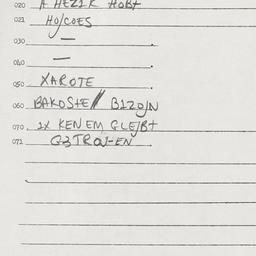 020 A HEZIK HOBT
021 HO/COES
030 —
040 —
050 XAROTE
060 BAKOSTE// BIZOJN
070. 1X KENEM GLEJBT
071 G3TROJ-EN